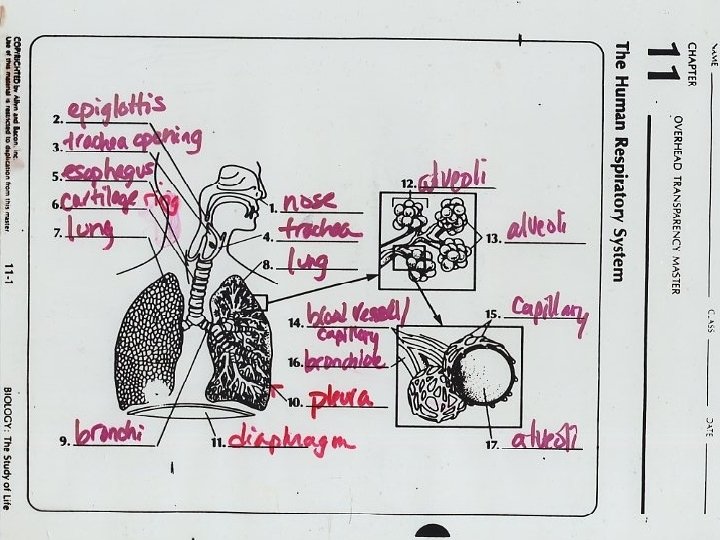 NAME
CLASS
DATE
CHAPTER
11
OVERHEAD TRANSPARENCY MASTER
The Human Respiratory System
2. epiglottis
3. trachea opening
5. esophagus
6. cartilage ring
7. lung
1. nose
4. trachea
8. lung
12. alveoli
13. alveoli
14. blood vessel/
capillary
15. capillary
16. bronchiole
10. pleura
9. bronchi
11. diaphragm
17. alveoli
COPYRIGHTED by Allyn and Bacon, Inc.
Use of this material is restricted to duplication from this master.
11-1
BIOLOGY: The Study of Life